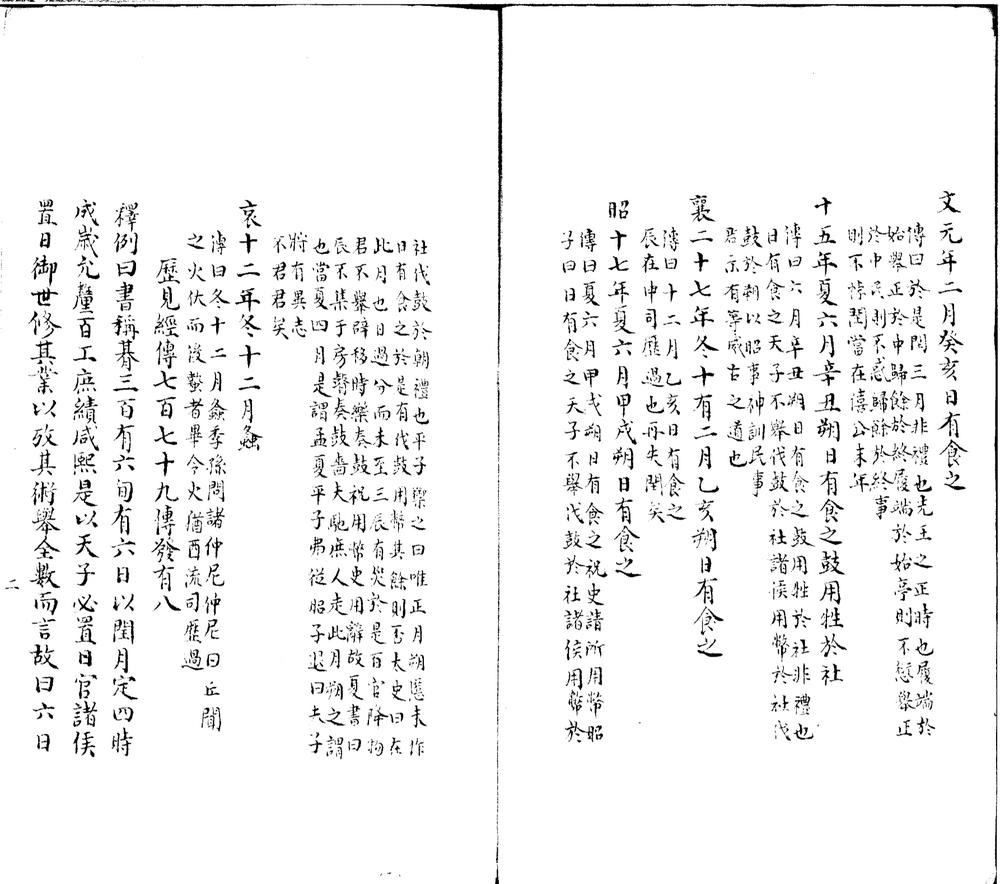 文元年二月癸亥日有食之
傳曰於是閏三月非禮也先王之正時也履端於
始舉正於中歸餘於終履端於始序則不愆舉正
於中民則不惑歸餘於終事
則不悖閏當在僖公末年
十五年夏六月辛丑朔日有食之鼓用牲於社
傳曰六月辛丑朔日有食之鼓用牲於社非禮也
日有食之天子不舉伐鼓於社諸侯用幣於社伐
鼓於朝以昭事神訓民事
君示有等威古之道也
襄二十七年冬十有二月乙亥朔日有食之
傳曰十二月乙亥日有食之
辰在申司歷過也再失閏矣
昭十七年夏六月甲戌朔日有食之
傳曰夏六月甲戌朔日有食之祝史請所用幣昭
子曰日有食之天子不舉伐鼓於社諸侯用幣於
社伐鼓於朝禮也平子禦之曰唯正月朔慝未作
日有食之於是有伐鼓用幣其餘則否太史曰在
此月也日過分而未至三辰有災於是百官降物
君不舉辟移時樂奏鼓祝用幣史用辭故夏書曰
辰不集于房瞽奏鼓嗇夫馳庶人走此月朔之謂
也當夏四月是謂孟夏平子弗從昭子退曰夫子
將有異志
不君君矣
哀十二年冬十二月螽
傳曰冬十二月螽季孫問諸仲尼仲尼曰丘聞
之火伏而後蟄者畢今火猶西流司歷過
歷見經傳七百七十九傳發有八
釋例曰書稱朞三百有六旬有六日以閏月定四時
成歲允釐百工庶績咸熙是以天子必置日官諸侯
置日御世修其業以攷其術舉全數而言故曰六日
二